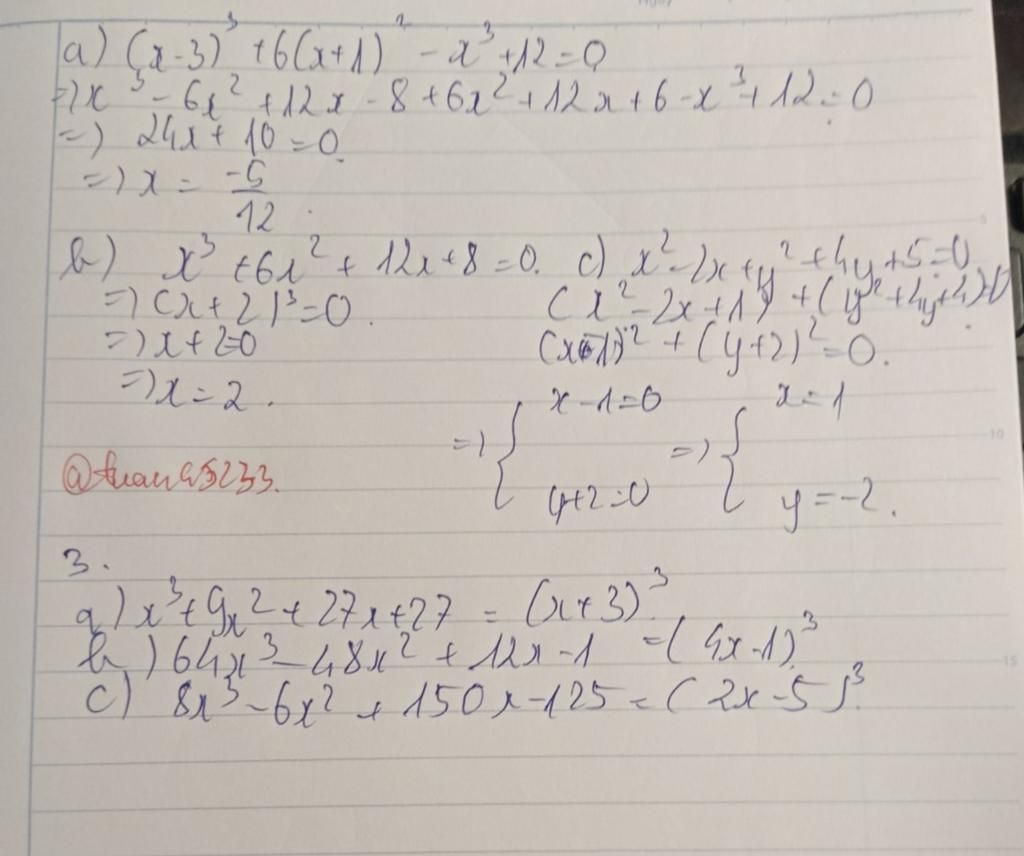 a) (x-3)³ + 6(x+1)² - x³ + 12 = 0
=> x³ - 6x² + 12x - 8 + 6x² + 12x + 6 - x³ + 12 = 0
=> 24x + 10 = 0
=> x = -5/12.
b) x³ + 6x² + 12x + 8 = 0.
=> (x + 2)³ = 0.
=> x + 2 = 0
=> x = 2.
c) x² - 2x + y² + 4y + 5 = 0
(x² - 2x + 1) + (y² + 4y + 4) = 0.
(x - 1)² + (y + 2)² = 0.
=> { x - 1 = 0 => { x = 1
y + 2 = 0 y = -2.
3.
a) x³ + 9x² + 27x + 27 = (x + 3)³
b) 64x³ - 48x² + 12x - 1 = (4x - 1)³
c) 8x³ - 6x² + 150x - 125 = (2x - 5)³.